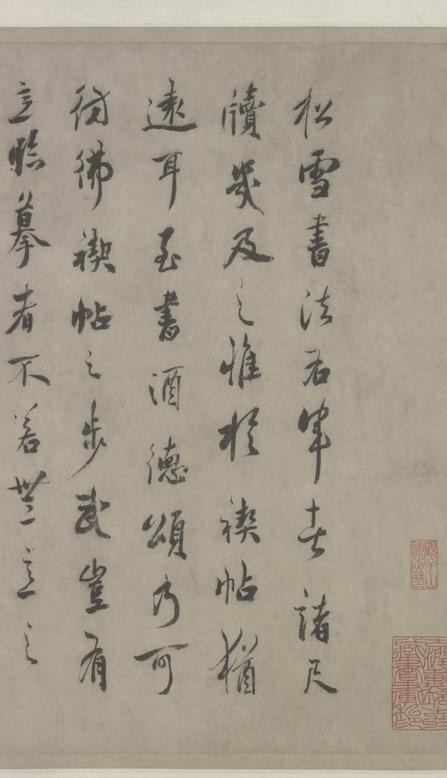 松雪書法右軍諸尺
牘幾及之惟於禊帖猶
遠耳至書酒德頌乃可
彷彿禊帖之步武豈有
意臨摹者不若無意之